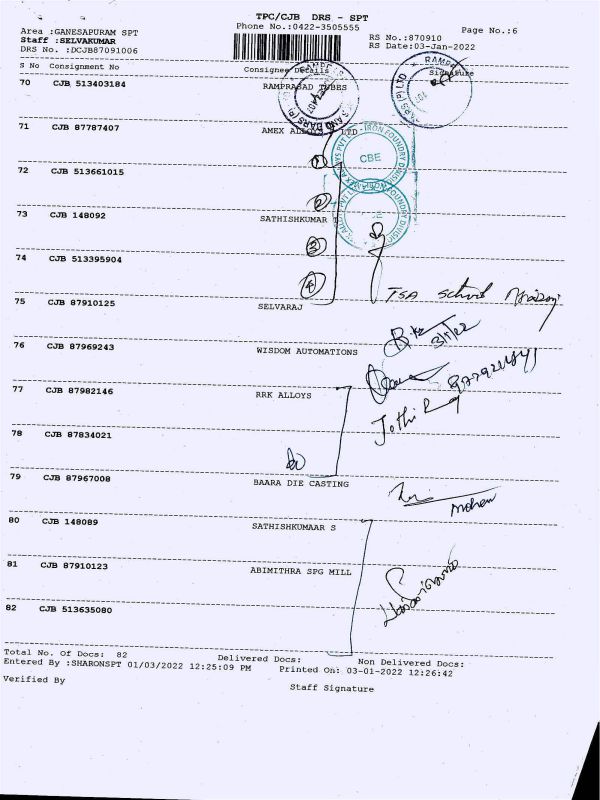 TPC/CJB DRS - SPT
Area :GANESAPURAM SPT Phone No.:0422-3505555 Page No.:6
Staff :SELVAKUMAR RS No.:870910
DRS No. :DCJB87091006 RS Date:03-Jan-2022
S No Consignment No Consignee Details Signature
70 CJB 513403184 RAMPRASAD TUBES
71 CJB 87787407 AMEX ALLOY LTD
IRON FOUNDRY DIVISION
CBE
①
72 CJB 513661015
②
73 CJB 148092 SATHISHKUMAR
③
74 CJB 513395904
④
TSA School
75 CJB 87910125 SELVARAJ
3/1/22
76 CJB 87969243 WISDOM AUTOMATIONS
77 CJB 87982146 RRK ALLOYS
Jothi
78 CJB 87834021
79 CJB 87967008 BAARA DIE CASTING
Mohan
80 CJB 148089 SATHISHKUMAAR S
81 CJB 87910123 ABIMITHRA SPG MILL
82 CJB 513635080
Total No. Of Docs: 82 Delivered Docs: Non Delivered Docs:
Entered By :SHARONSPT 01/03/2022 12:25:09 PM Printed On: 03-01-2022 12:26:42
Verified By Staff Signature